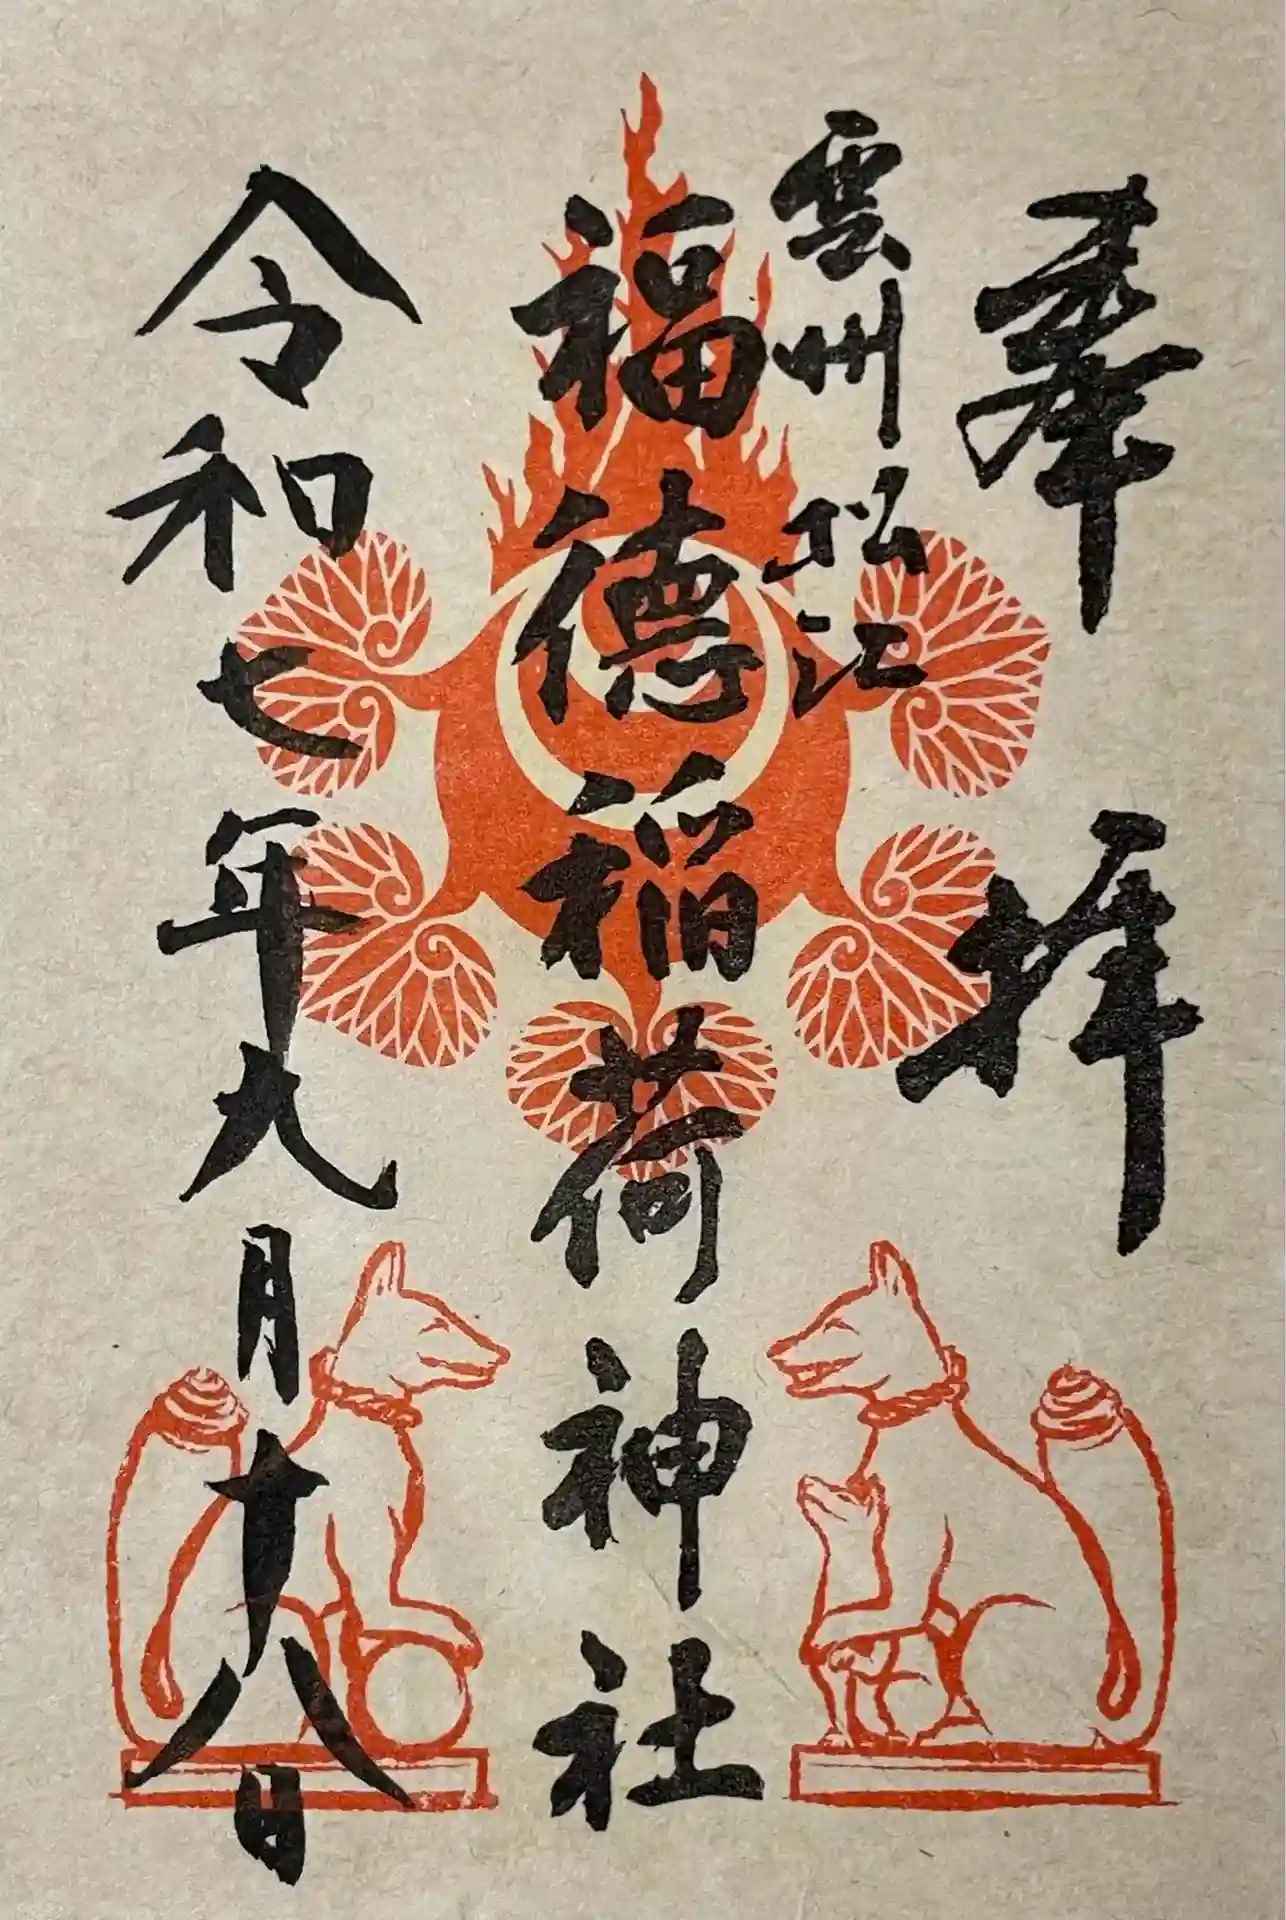 奉拝
雲州松江
福徳稲荷神社
令和七年九月十八日